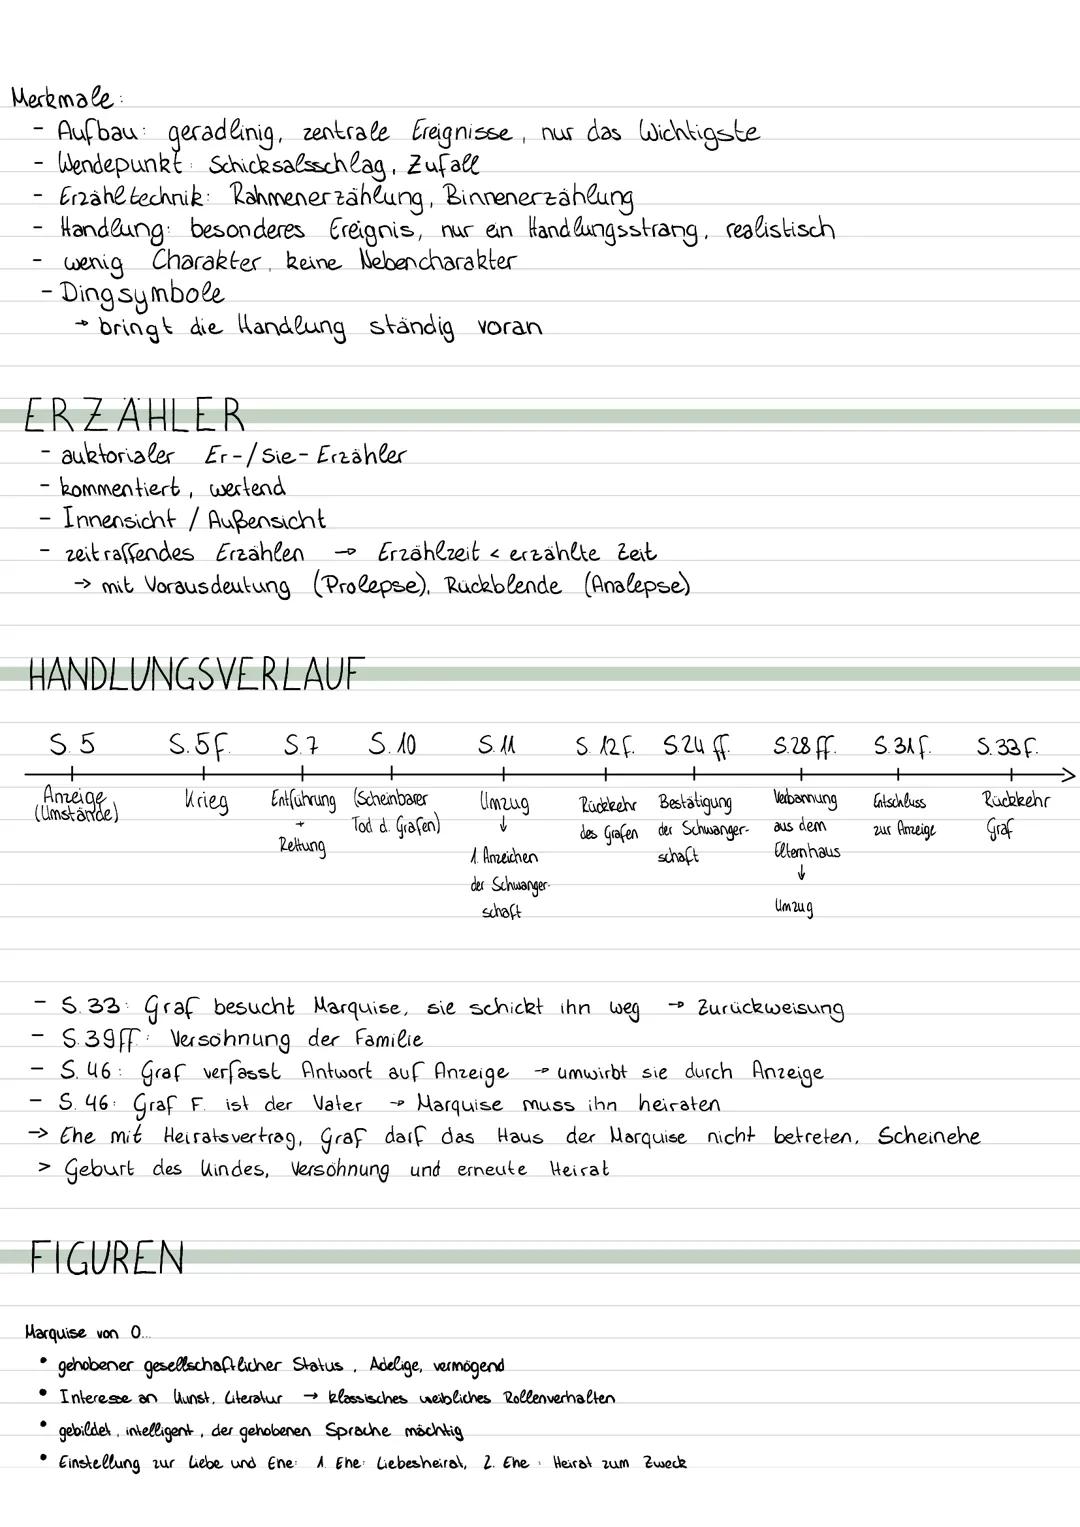 Merkmale:
- Aufbau: geradlinig, zentrale Ereignisse, nur das Wichtigste
- Wendepunkt: Schicksalsschlag, Zufall
- Erzähltechnik: Rahmenerzählung, Binnenerzählung
- Handlung: besonderes Ereignis, nur ein Handlungsstrang, realistisch
- wenig Charakter, keine Nebencharakter
- Dingsymbole
→ bringt die Handlung ständig voran
ERZÄHLER
- auktorialer Er-/Sie-Erzähler
- kommentiert, wertend
- Innensicht / Außensicht
- zeitraffendes Erzählen → Erzählzeit < erzählte Zeit
→ mit Vorausdeutung (Prolepse), Rückblende (Analepse)
HANDLUNGSVERLAUF
S. 5 S. 5f. S. 7 S. 10 S. 11 S. 12f. S. 24 ff. S. 28 ff. S. 31 f. S. 33 f.
Anzeige Krieg Entführung (Scheinbarer Umzug Rückkehr Bestätigung Verbannung Entschluss Rückkehr
(Umstände) + Tod d. Grafen) ↓ des Grafen der Schwanger- aus dem zur Anzeige Graf
Rettung 1. Anzeichen schaft Elternhaus
der Schwanger- ↓
schaft Umzug
- S. 33: Graf besucht Marquise, sie schickt ihn weg → Zurückweisung
- S. 39ff: Versöhnung der Familie
- S. 46: Graf verfasst Antwort auf Anzeige → umwirbt sie durch Anzeige
- S. 46: Graf F. ist der Vater → Marquise muss ihn heiraten
→ Ehe mit Heiratsvertrag, Graf darf das Haus der Marquise nicht betreten, Scheinehe
> Geburt des Kindes, Versöhnung und erneute Heirat
FIGUREN
Marquise von O...
• gehobener gesellschaftlicher Status, Adelige, vermögend
• Interesse an Kunst, Literatur → klassisches weibliches Rollenverhalten
• gebildet, intelligent, der gehobenen Sprache mächtig
• Einstellung zur Liebe und Ehe: 1. Ehe: Liebesheirat, 2. Ehe: Heirat zum Zweck